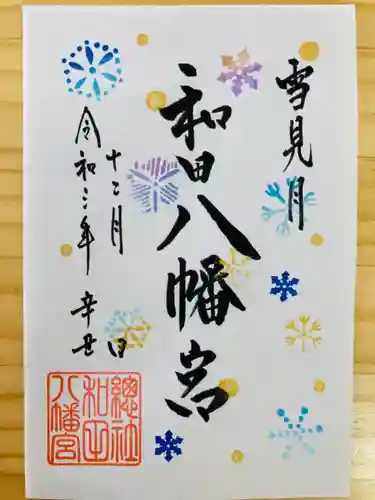 雪見月
和田八幡宮
十二月 日
令和三年 辛丑
總社
和田
八幡宮